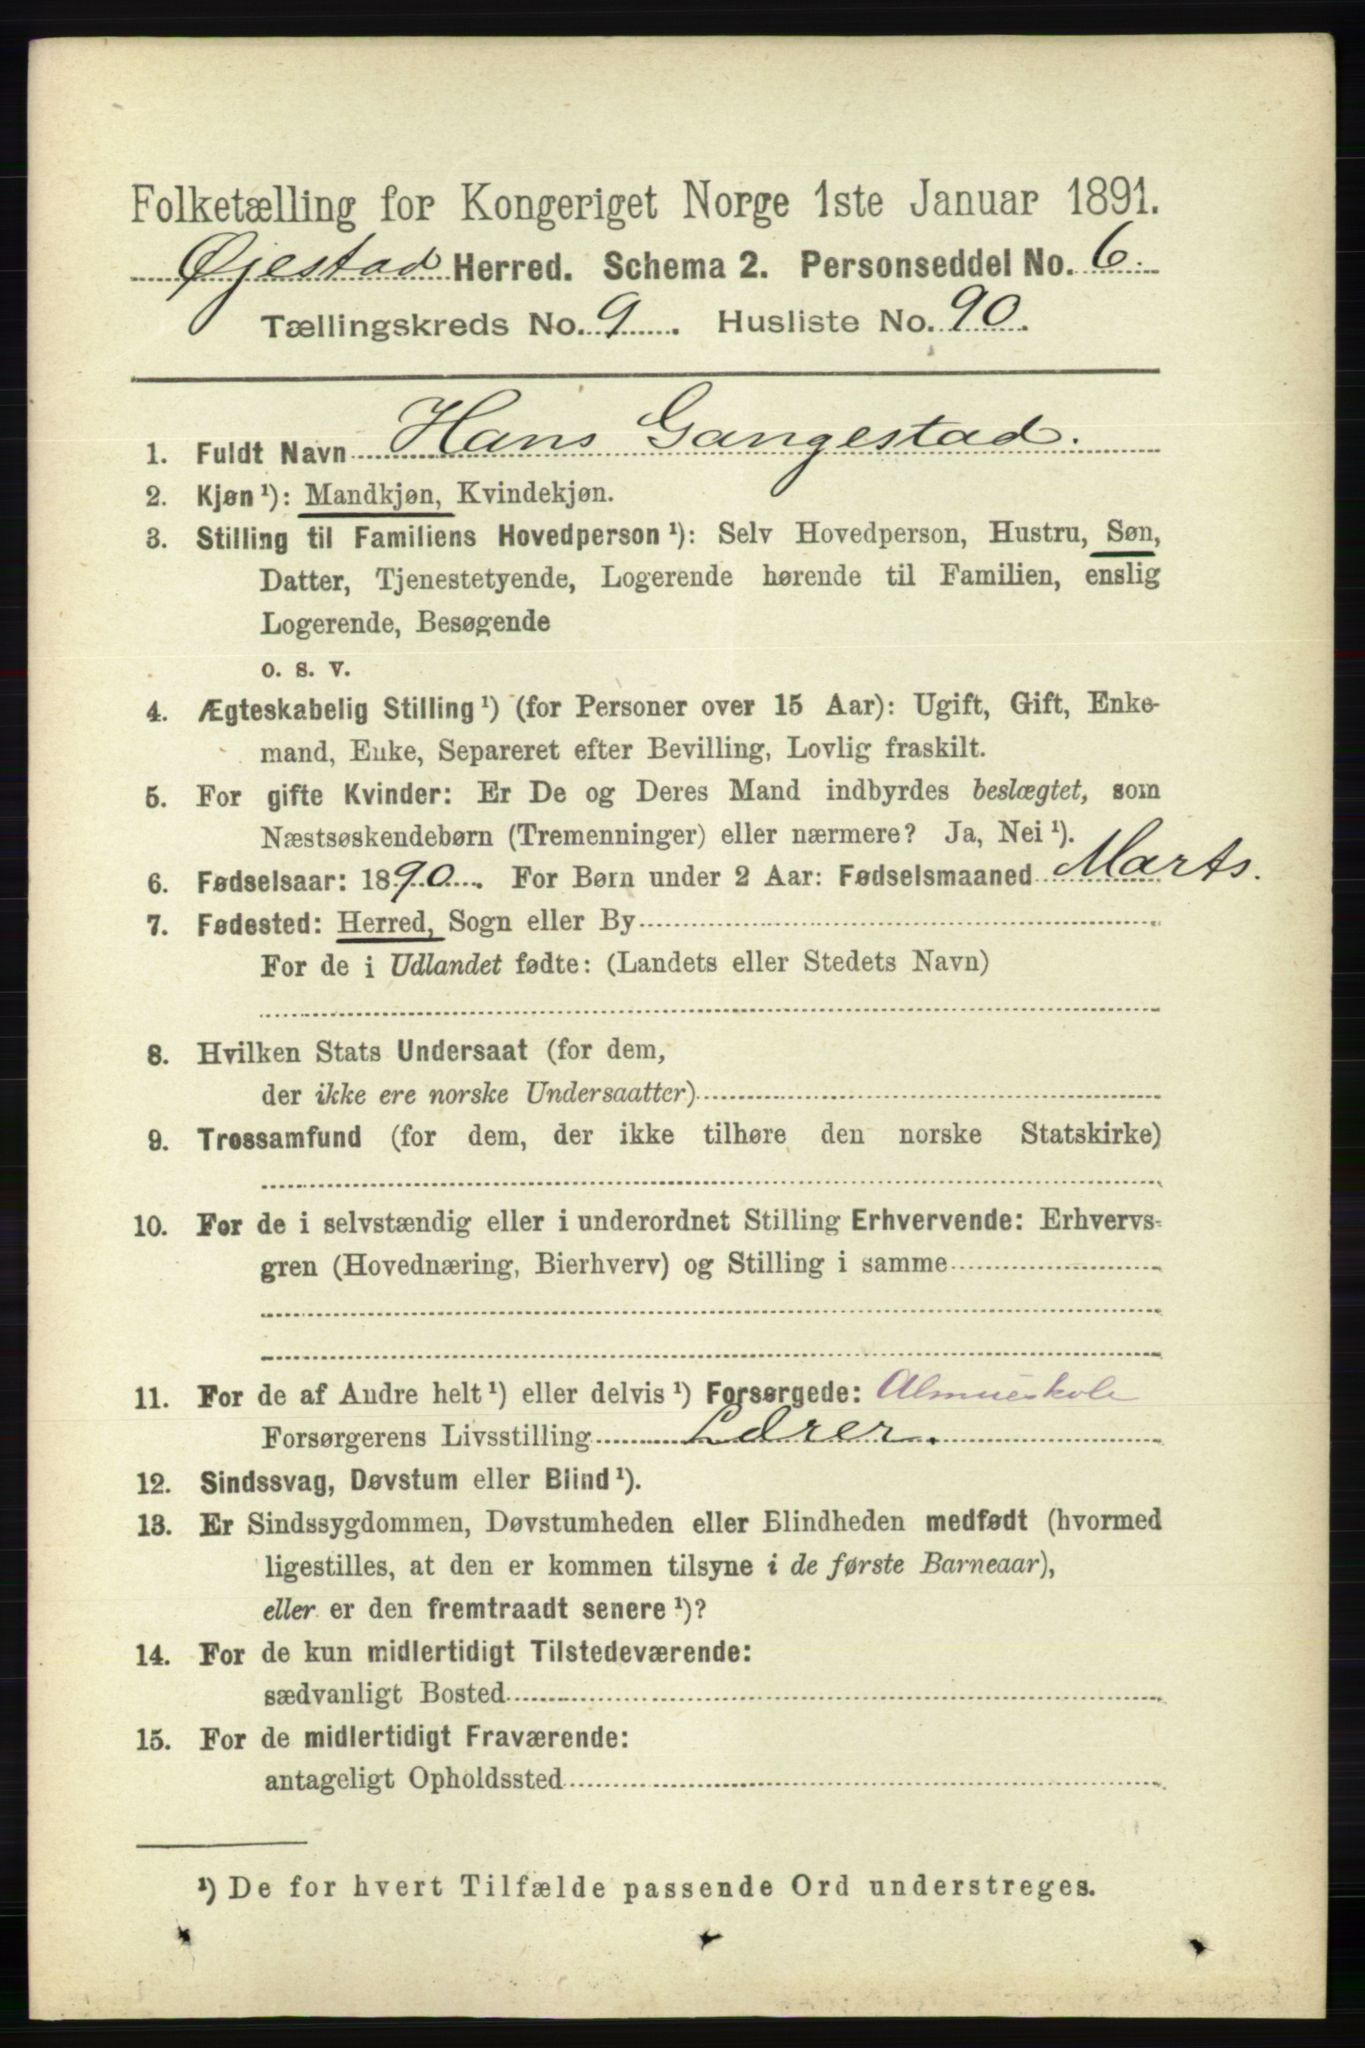 Folketælling for Kongeriget Norge 1ste Januar 1891.
Øjestad Herred. Schema 2. Personseddel No. 6.
Tællingskreds No. 9. Husliste No. 90.
1. Fuldt Navn Hans Gangestad.
2. Kjøn ¹): Mandkjøn, Kvindekjøn.
3. Stilling til Familiens Hovedperson ¹): Selv Hovedperson, Hustru, Søn,
Datter, Tjenestetyende, Logerende hørende til Familien, enslig
Logerende, Besøgende
o. s. v.
4. Ægteskabelig Stilling ¹) (for Personer over 15 Aar): Ugift, Gift, Enke-
mand, Enke, Separeret efter Bevilling, Lovlig fraskilt.
5. For gifte Kvinder: Er De og Deres Mand indbyrdes beslægtet, som
Næstsøskendebørn (Tremenninger) eller nærmere? Ja, Nei ¹).
6. Fødselsaar: 1890. For Børn under 2 Aar: Fødselsmaaned Marts.
7. Fødested: Herred, Sogn eller By
For de i Udlandet fødte: (Landets eller Stedets Navn)
8. Hvilken Stats Undersaat (for dem,
der ikke ere norske Undersaatter)
9. Trossamfund (for dem, der ikke tilhøre den norske Statskirke)
10. For de i selvstændig eller i underordnet Stilling Erhvervende: Erhvervs-
gren (Hovednæring, Bierhverv) og Stilling i samme
11. For de af Andre helt ¹) eller delvis ¹) Forsørgede: Almueskole
Forsørgerens Livsstilling Lærer.
12. Sindssvag, Døvstum eller Blind ¹).
13. Er Sindssygdommen, Døvstumheden eller Blindheden medfødt (hvormed
ligestilles, at den er kommen tilsyne i de første Barneaar),
eller er den fremtraadt senere ¹)?
14. For de kun midlertidigt Tilstedeværende:
sædvanligt Bosted
15. For de midlertidigt Fraværende:
antageligt Opholdssted
¹) De for hvert Tilfælde passende Ord understreges.